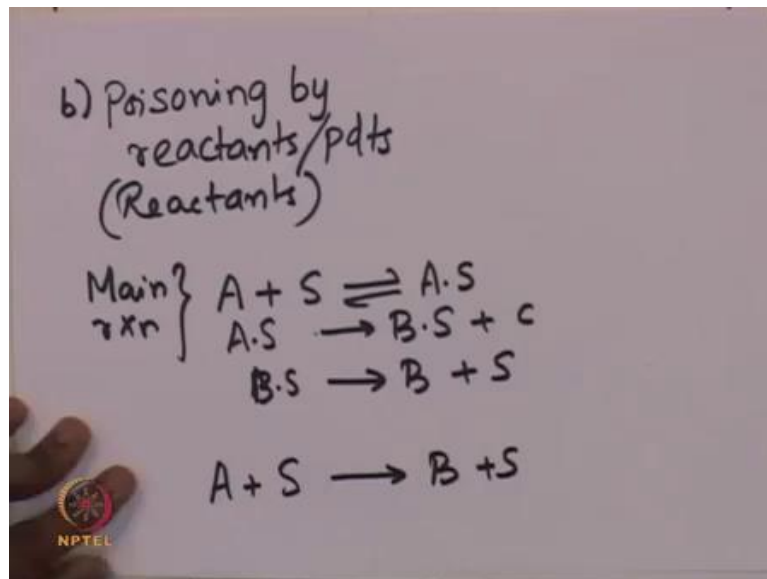 b) Poisoning by
reactants/pdts
(Reactants)
Main } A + S ⇌ A.S
rxn A.S → B.S + C
B.S → B + S
A + S → B + S
NPTEL